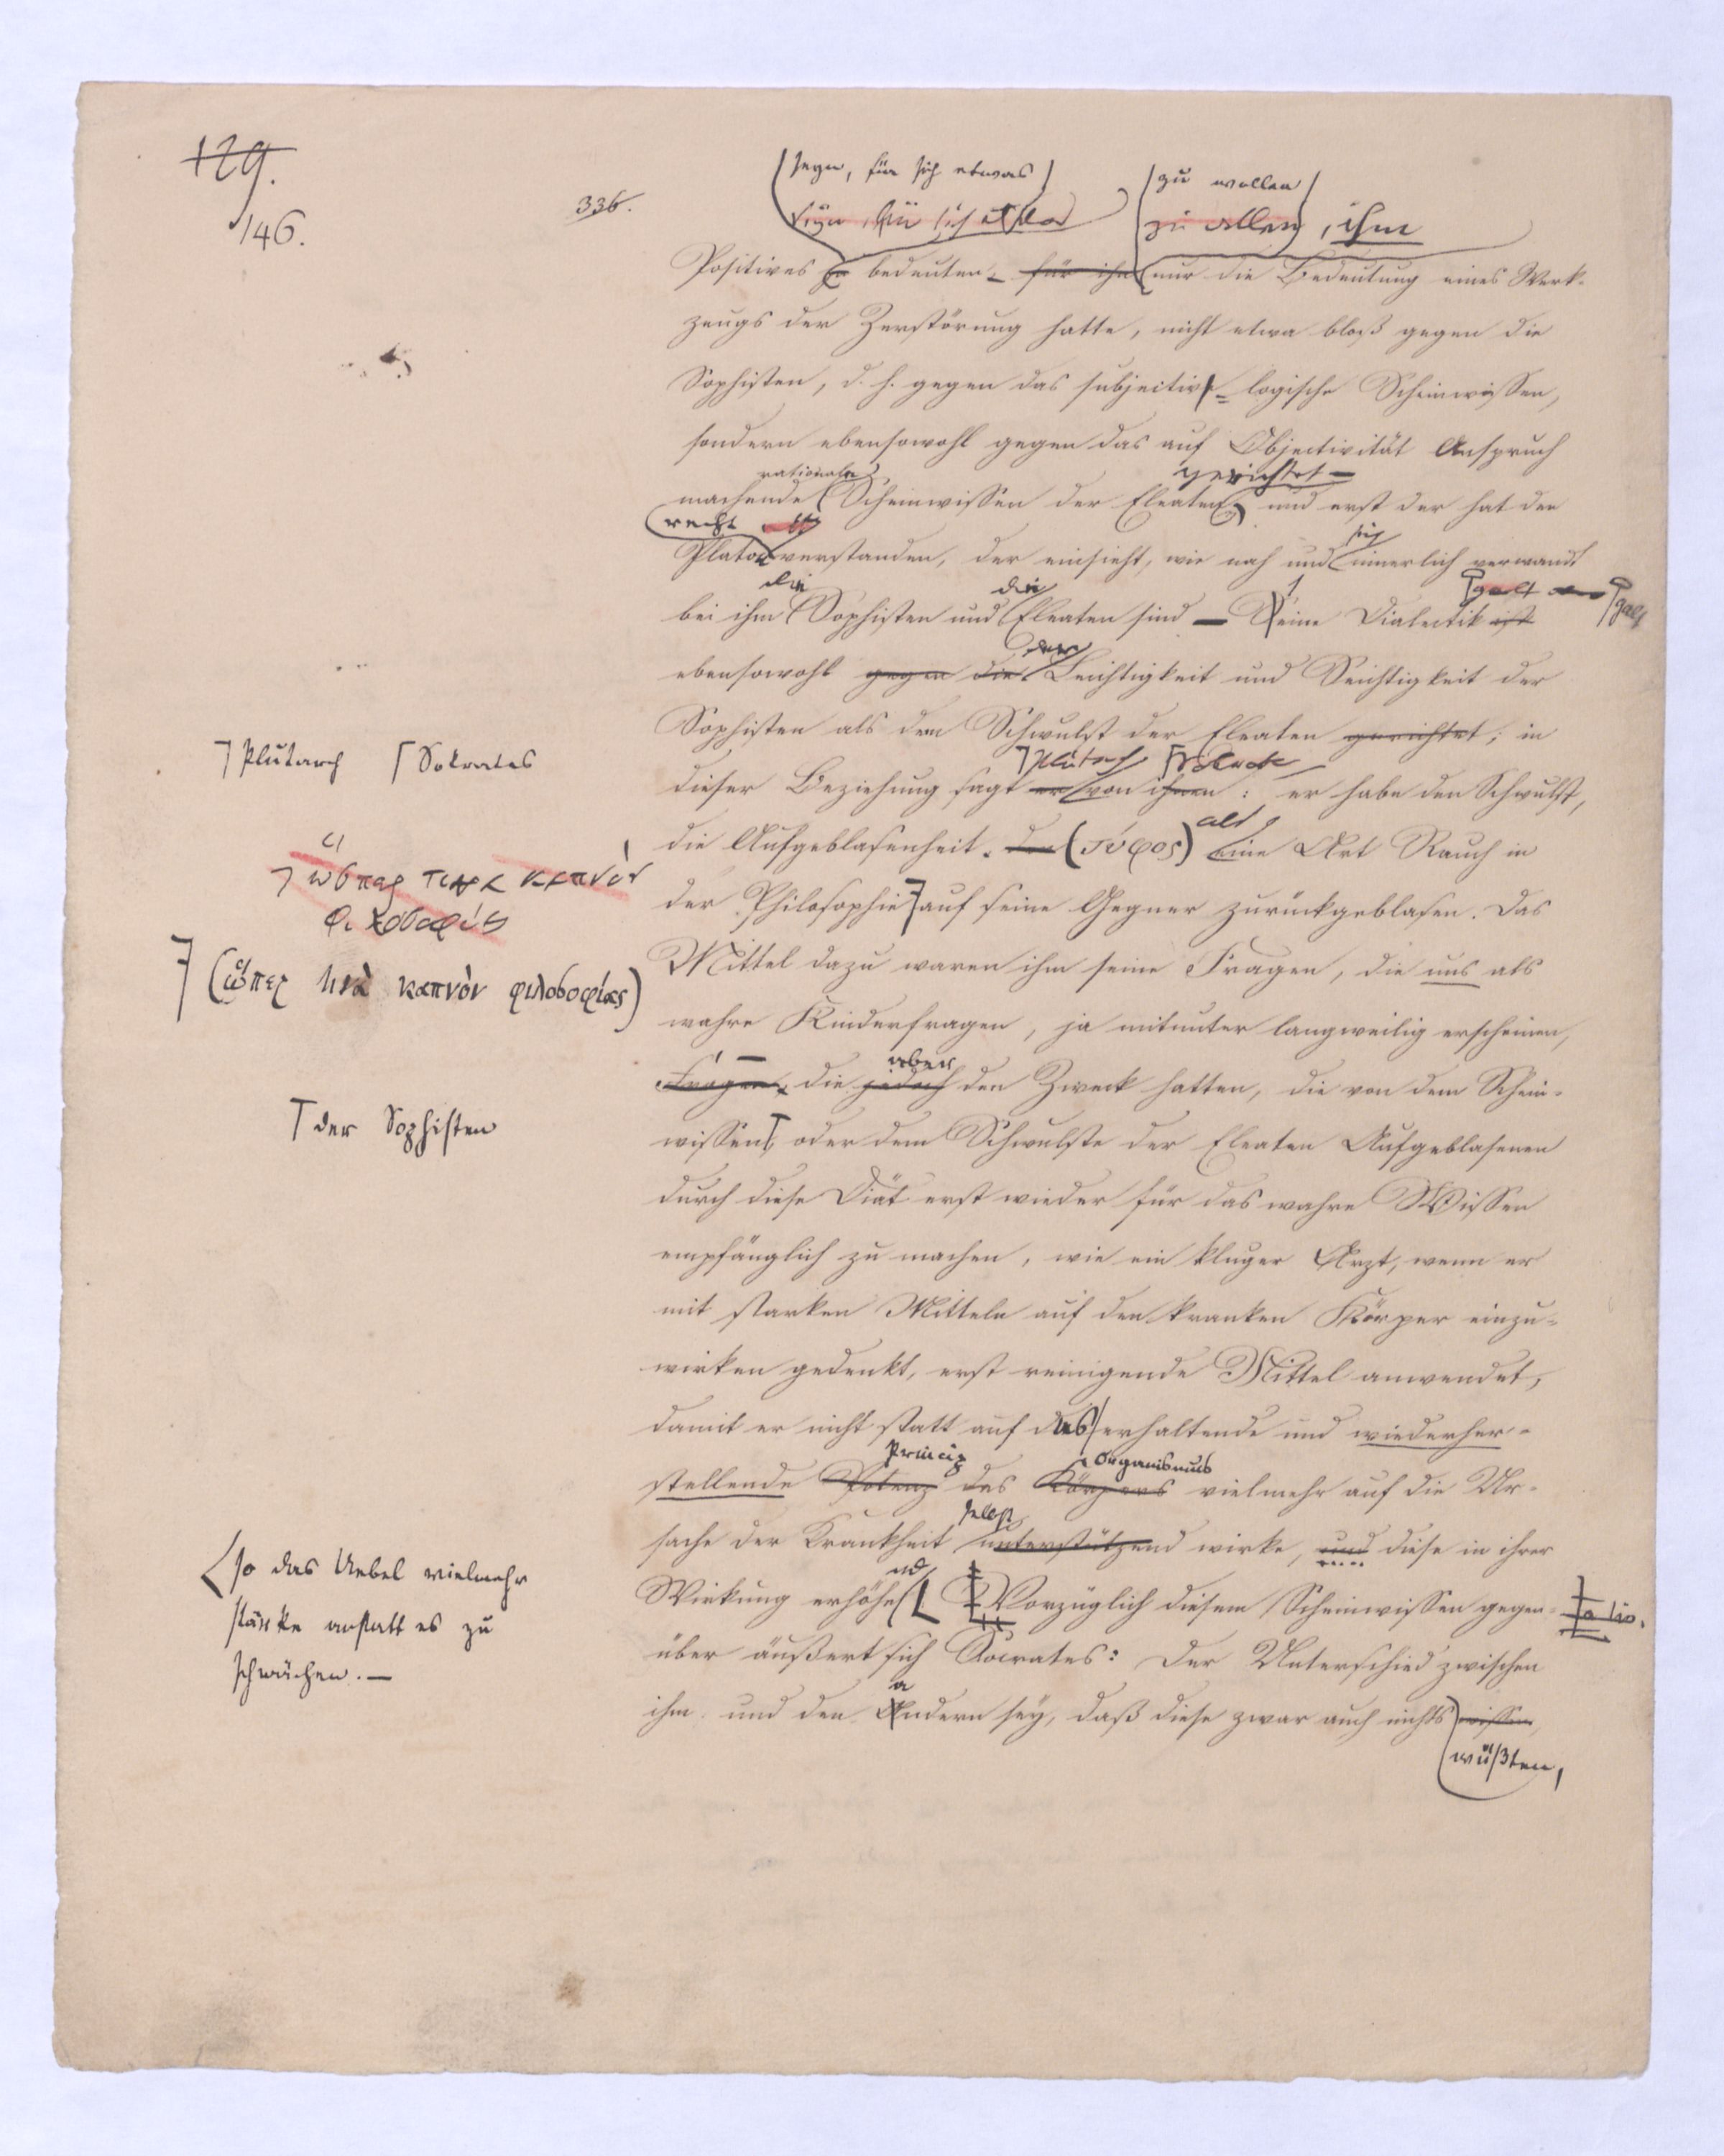 129.
146.
336.
seyn, für sich etwas
zu wollen
zu wollen, ihm
Positives zu bedeuten – für ihn nur die Bedeutung eines Werk-
zeugs der Zerstörung hatte, nicht etwa bloß gegen die
Sophisten, d. h. gegen das subjectiv-logische Scheinwissen,
sondern ebensowohl gegen das auf Objectivität Anspruch
rationale
gerichtet –
machende Scheinwissen der Eleaten, und erst der hat den
recht
sich
Platon verstanden, der einsieht, wie nah und innerlich verwandt
die
die
galt
galt
bei ihm Sophisten und Eleaten sind – Seine Dialektik ist
der
ebensowohl gegen die Leichtigkeit und Seichtigkeit der
Sophisten als den Schwulst der Eleaten gerichtet; in
⌉ Plutarch ⌈ Sokrates
Plutarch
dieser Beziehung sagt er von ihnen: er habe den Schwulst,
als
die Aufgeblasenheit. (τύφος) eine Art Rauch in
ὥσπερ τινα καπνὸν
φιλοσοφίας
der Philosophie auf seine Gegner zurückgeblasen. Das
⌉ (ὥσπερ τινὰ καπνὸν φιλοσοφίας)
Mittel dazu waren ihm seine Fragen, die uns als
wahre Kinderfragen, ja mitunter langweilig erscheinen,
aber
Fragen, die jedoch den Zweck hatten, die von dem Schein-
⌈ der Sophisten
wissen, oder dem Schwulste der Eleaten Aufgeblasenen
durch diese Diät erst wieder für das wahre Wissen
empfänglich zu machen, wie ein kluger Arzt, wenn er
mit starken Mitteln auf den kranken Körper einzu-
wirken gedenkt, erst reinigende Mittel anwendet,
damit er nicht statt auf das erhaltende und wiederher-
Princip
Organismus
stellende Potenz des Körpers vielmehr auf die Ur-
selbst
sache der Krankheit unterstützend wirke, und diese in ihrer
und
Wirkung erhöhe Vorzüglich diesem Scheinwissen gegen-
so das Uebel vielmehr
stärke anstatt es zu
schwächen. –
über äußert sich Socrates: Der Unterschied zwischen
a
ihm und den Andern sey, daß diese zwar auch nichts wissen,
wüßten,